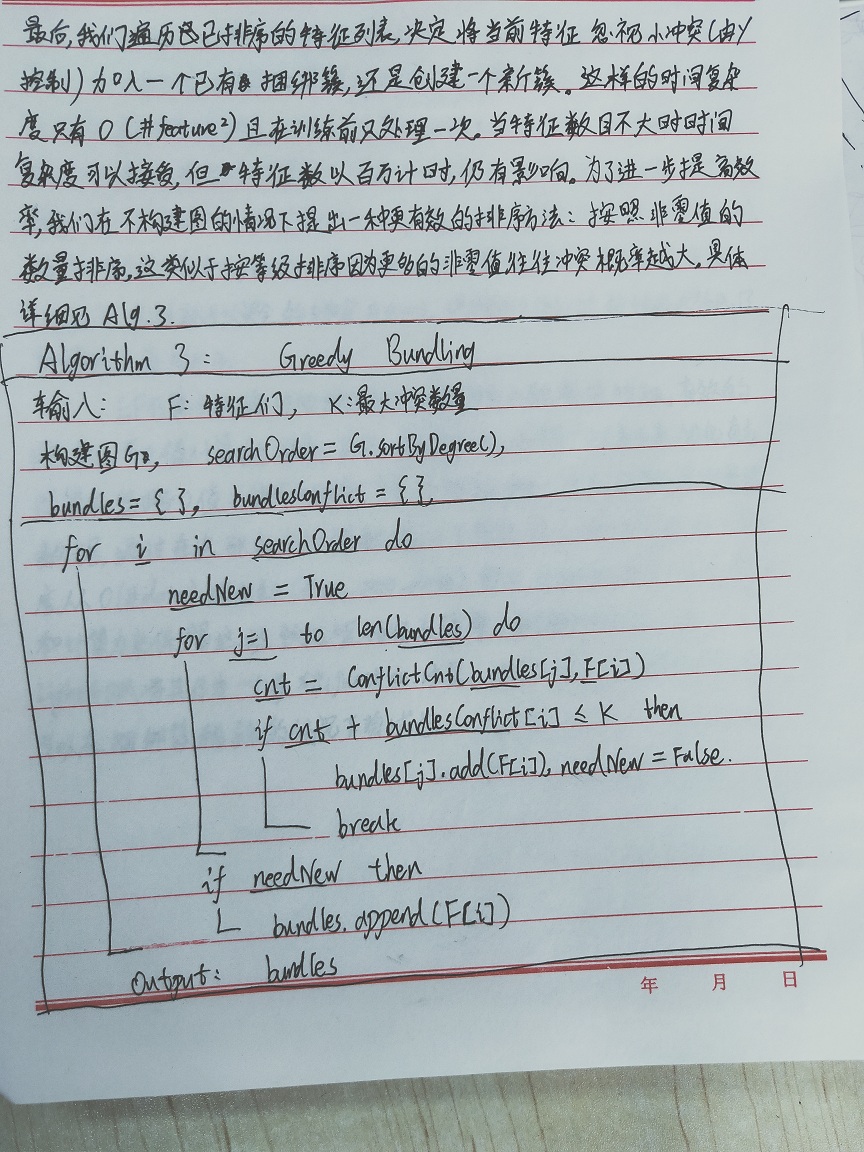 最后,我们遍历已排序的特征列表,决定将当前特征忽视小冲突(由γ
控制)加入一个已有捆绑簇,还是创建一个新簇。这样的时间复杂
度只有O(#feature²)且在训练前只处理一次。当特征数目不大时时间
复杂度可以接受,但特征数以百万计时,仍有影响。为了进一步提高效
率,我们在不构建图的情况下提出一种更有效的排序方法:按照非零值的
数量排序,这类似于按等级排序因为更多的非零值往往冲突概率越大。具体
详细见 Alg.3.
Algorithm 3: Greedy Bundling
输入: F:特征们, K:最大冲突数量
构建图G, searchOrder = G.sortByDegree(),
bundles={ }, bundlesConflict = { },
for i in searchOrder do
needNew = True
for j=1 to len(bundles) do
cnt = ConflictCnt(bundles[j], F[i])
if cnt + bundlesConflict[i] ≤ K then
bundles[j].add(F[i]), needNew = False.
break
if needNew then
bundles.append(F[i])
Output: bundles
年 月 日